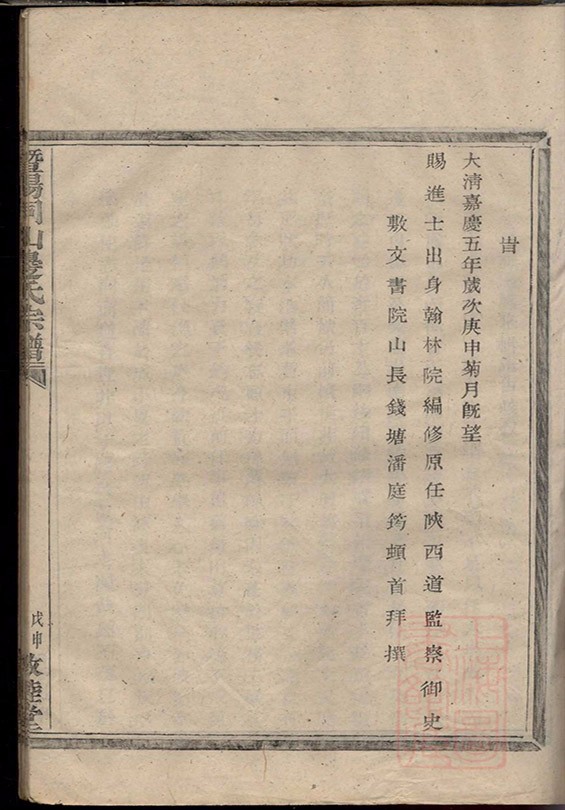 旹
大清嘉慶五年歲次庚申菊月旣望
賜進士出身翰林院編修原任陝西道監察御史
敷文書院山長錢塘潘庭筠頓首拜撰
暨陽同山邊氏宗譜
戊申
敦睦堂